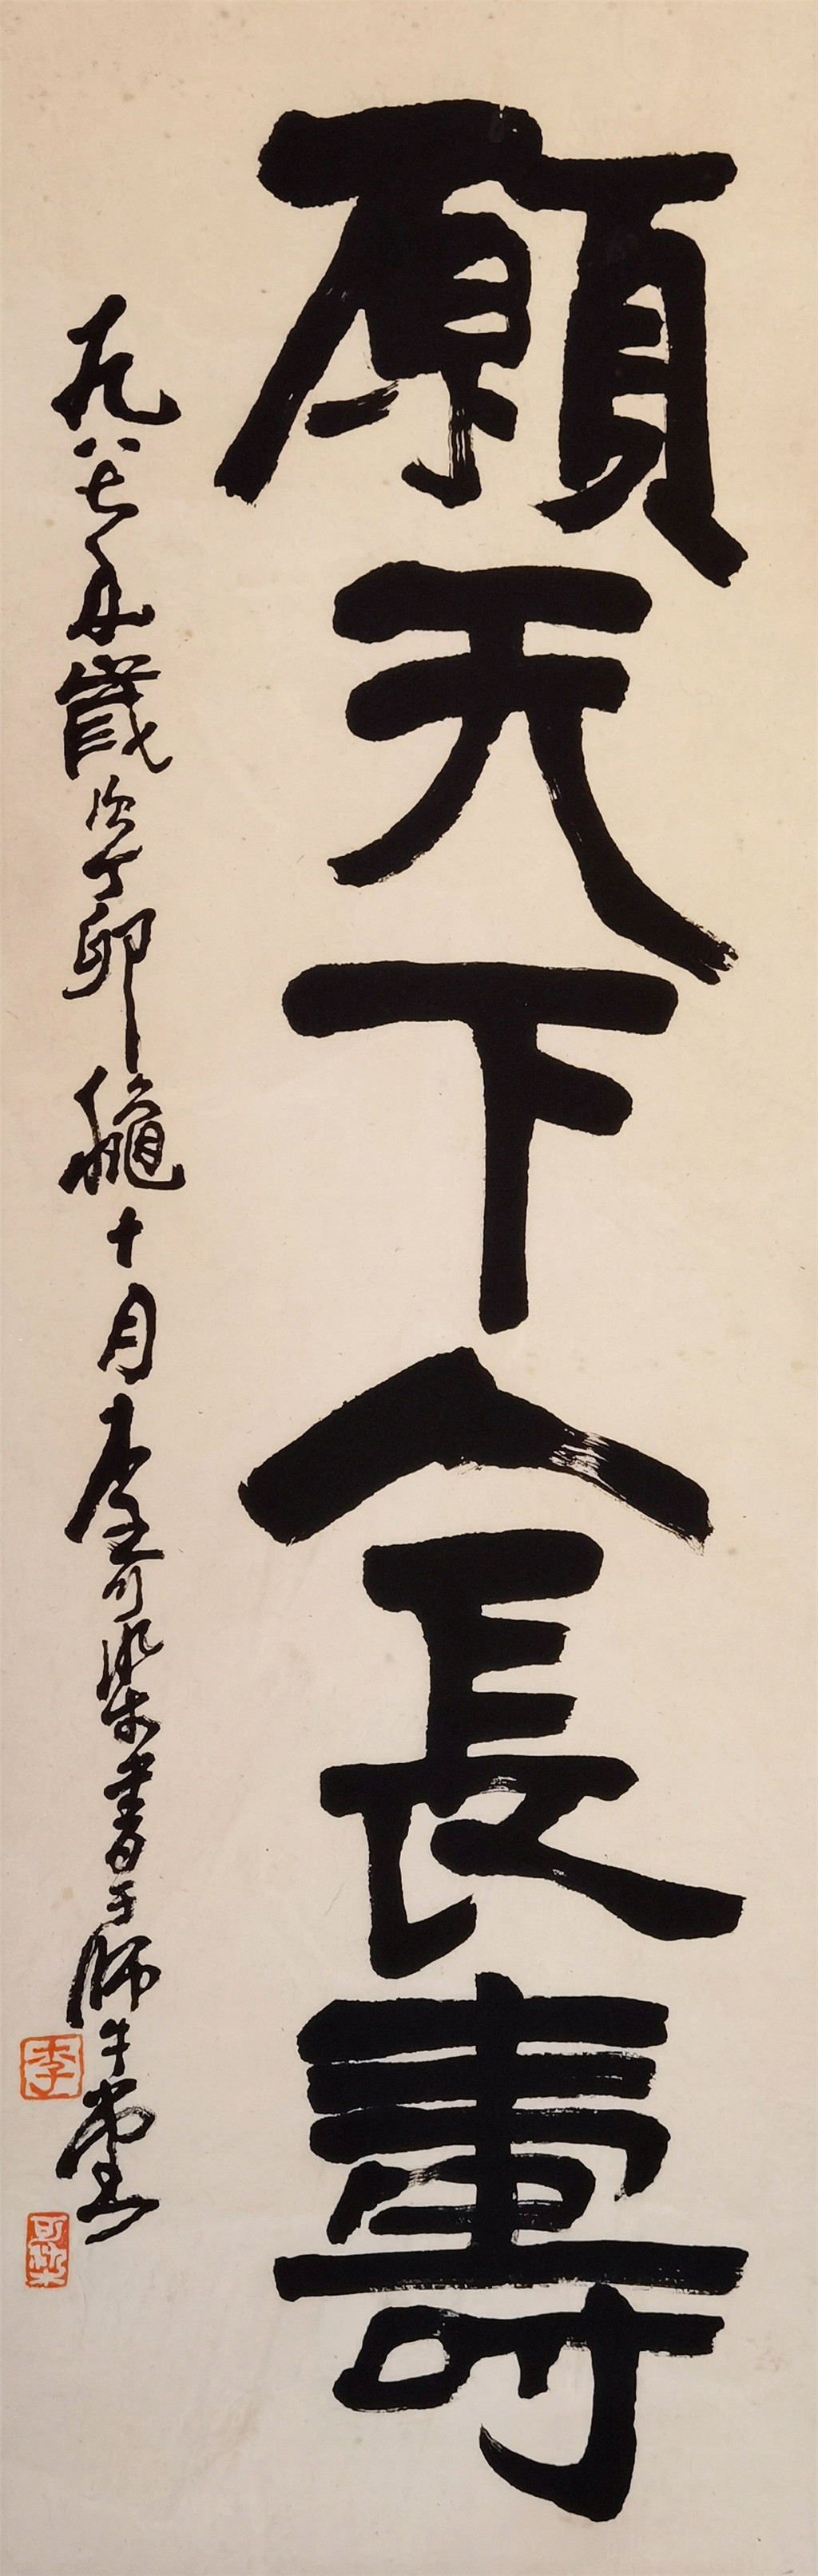 願天下人長壽
一九八七年歲次丁卯龝十月李可染書于師牛堂
李
可染